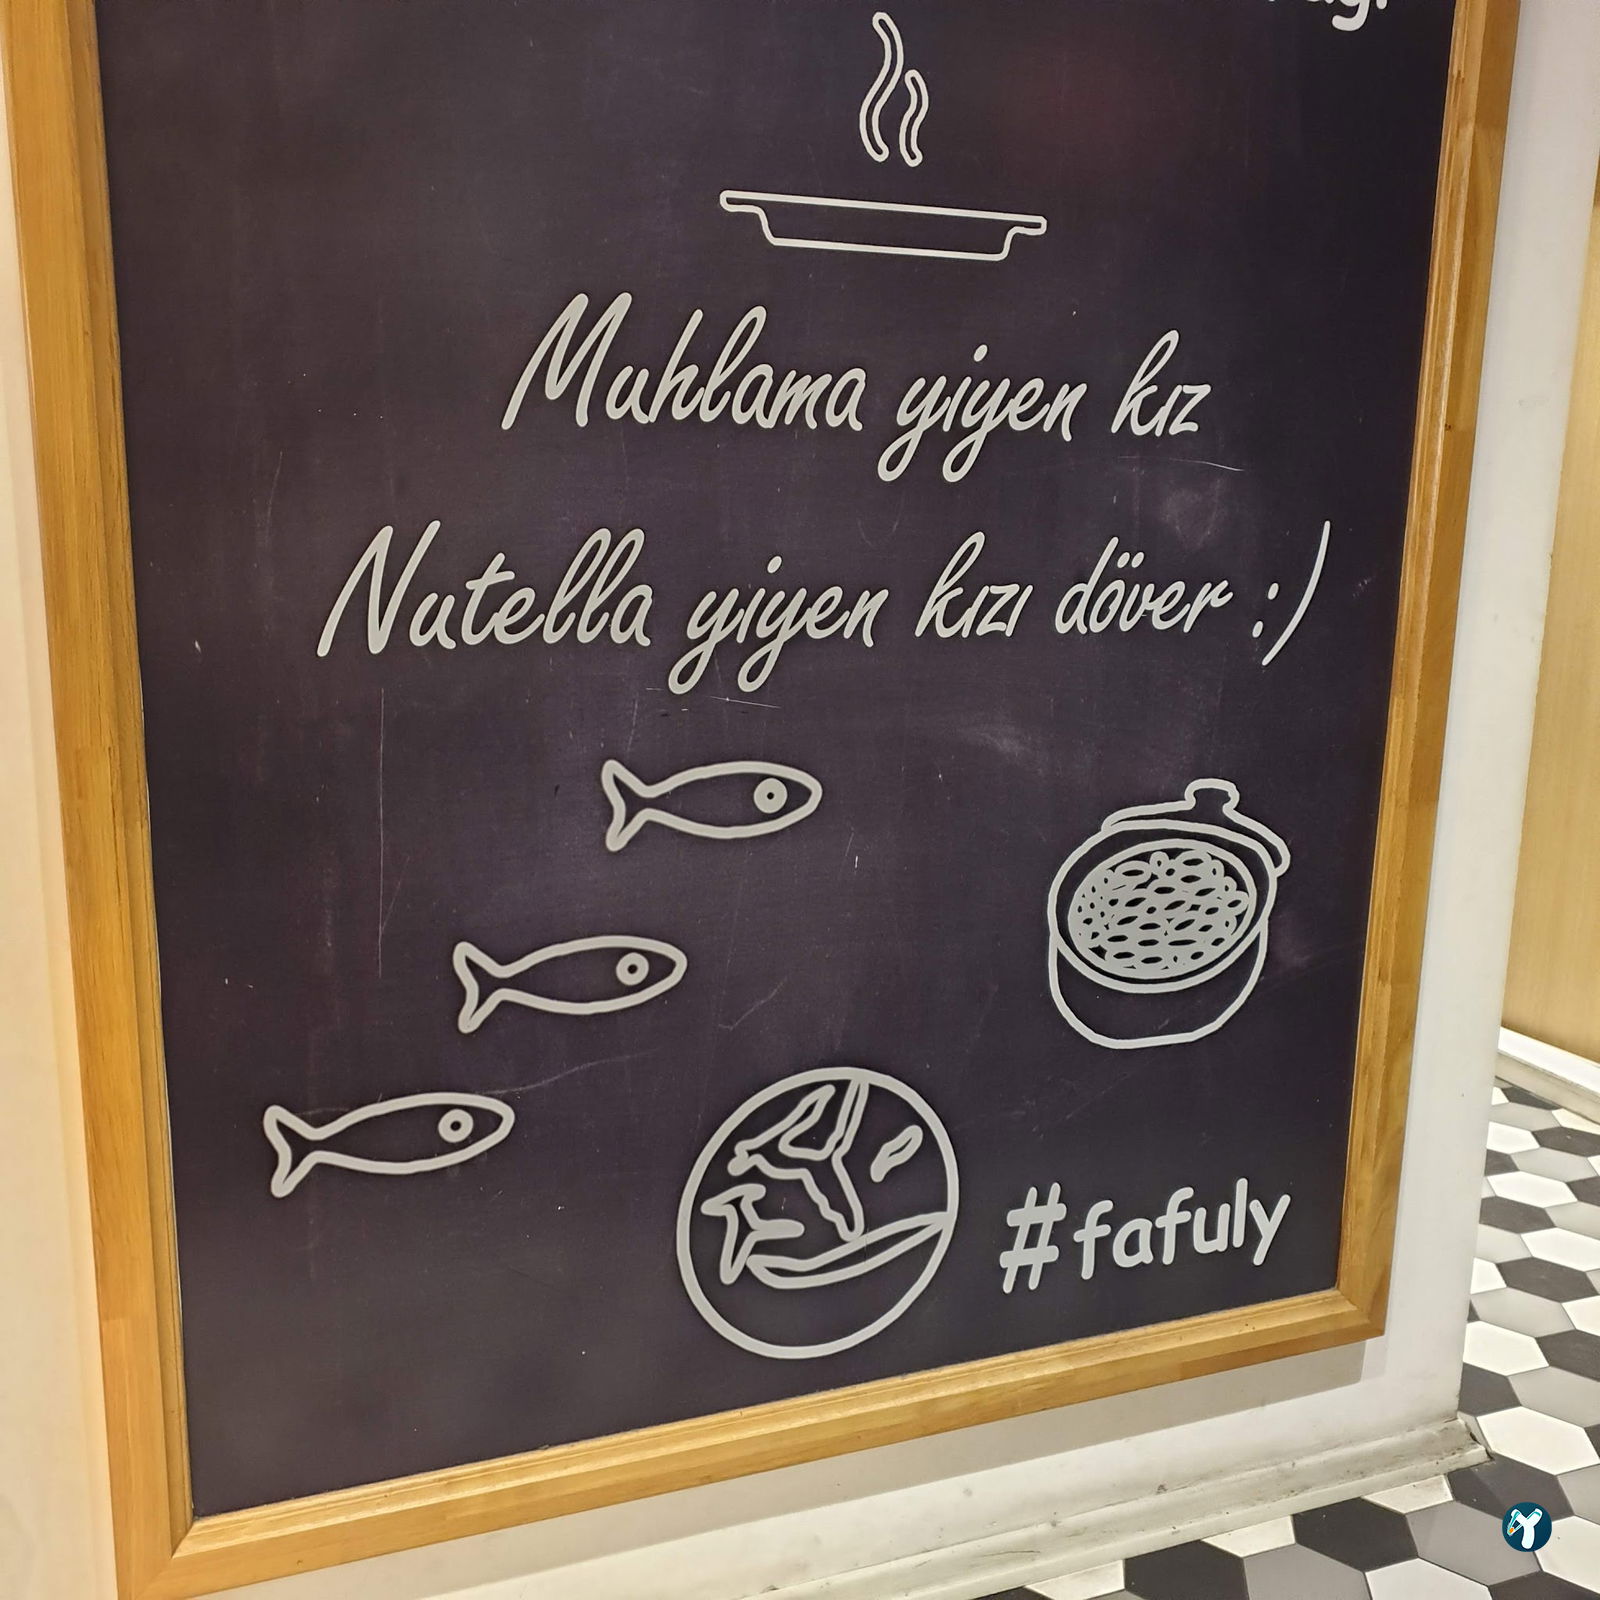 Muhlama yiyen kız
Nutella yiyen kızı döver :)
#fafuly